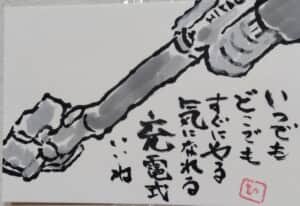 HITAC
いつでも
どこでも
すぐにやる
気になれる
充電式
いいね